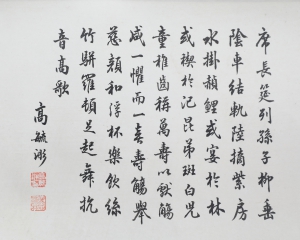 席長筵列孫子柳垂
陰車結軌陸摘紫房
水掛赬鯉或宴于林
或禊于汜昆弟班白兒
童稚齒稱萬壽以獻觴
咸一懼而一喜壽觴舉
慈顏和浮杯樂飲絲
竹駢羅頓足起舞抗
音高歌
高毓浵